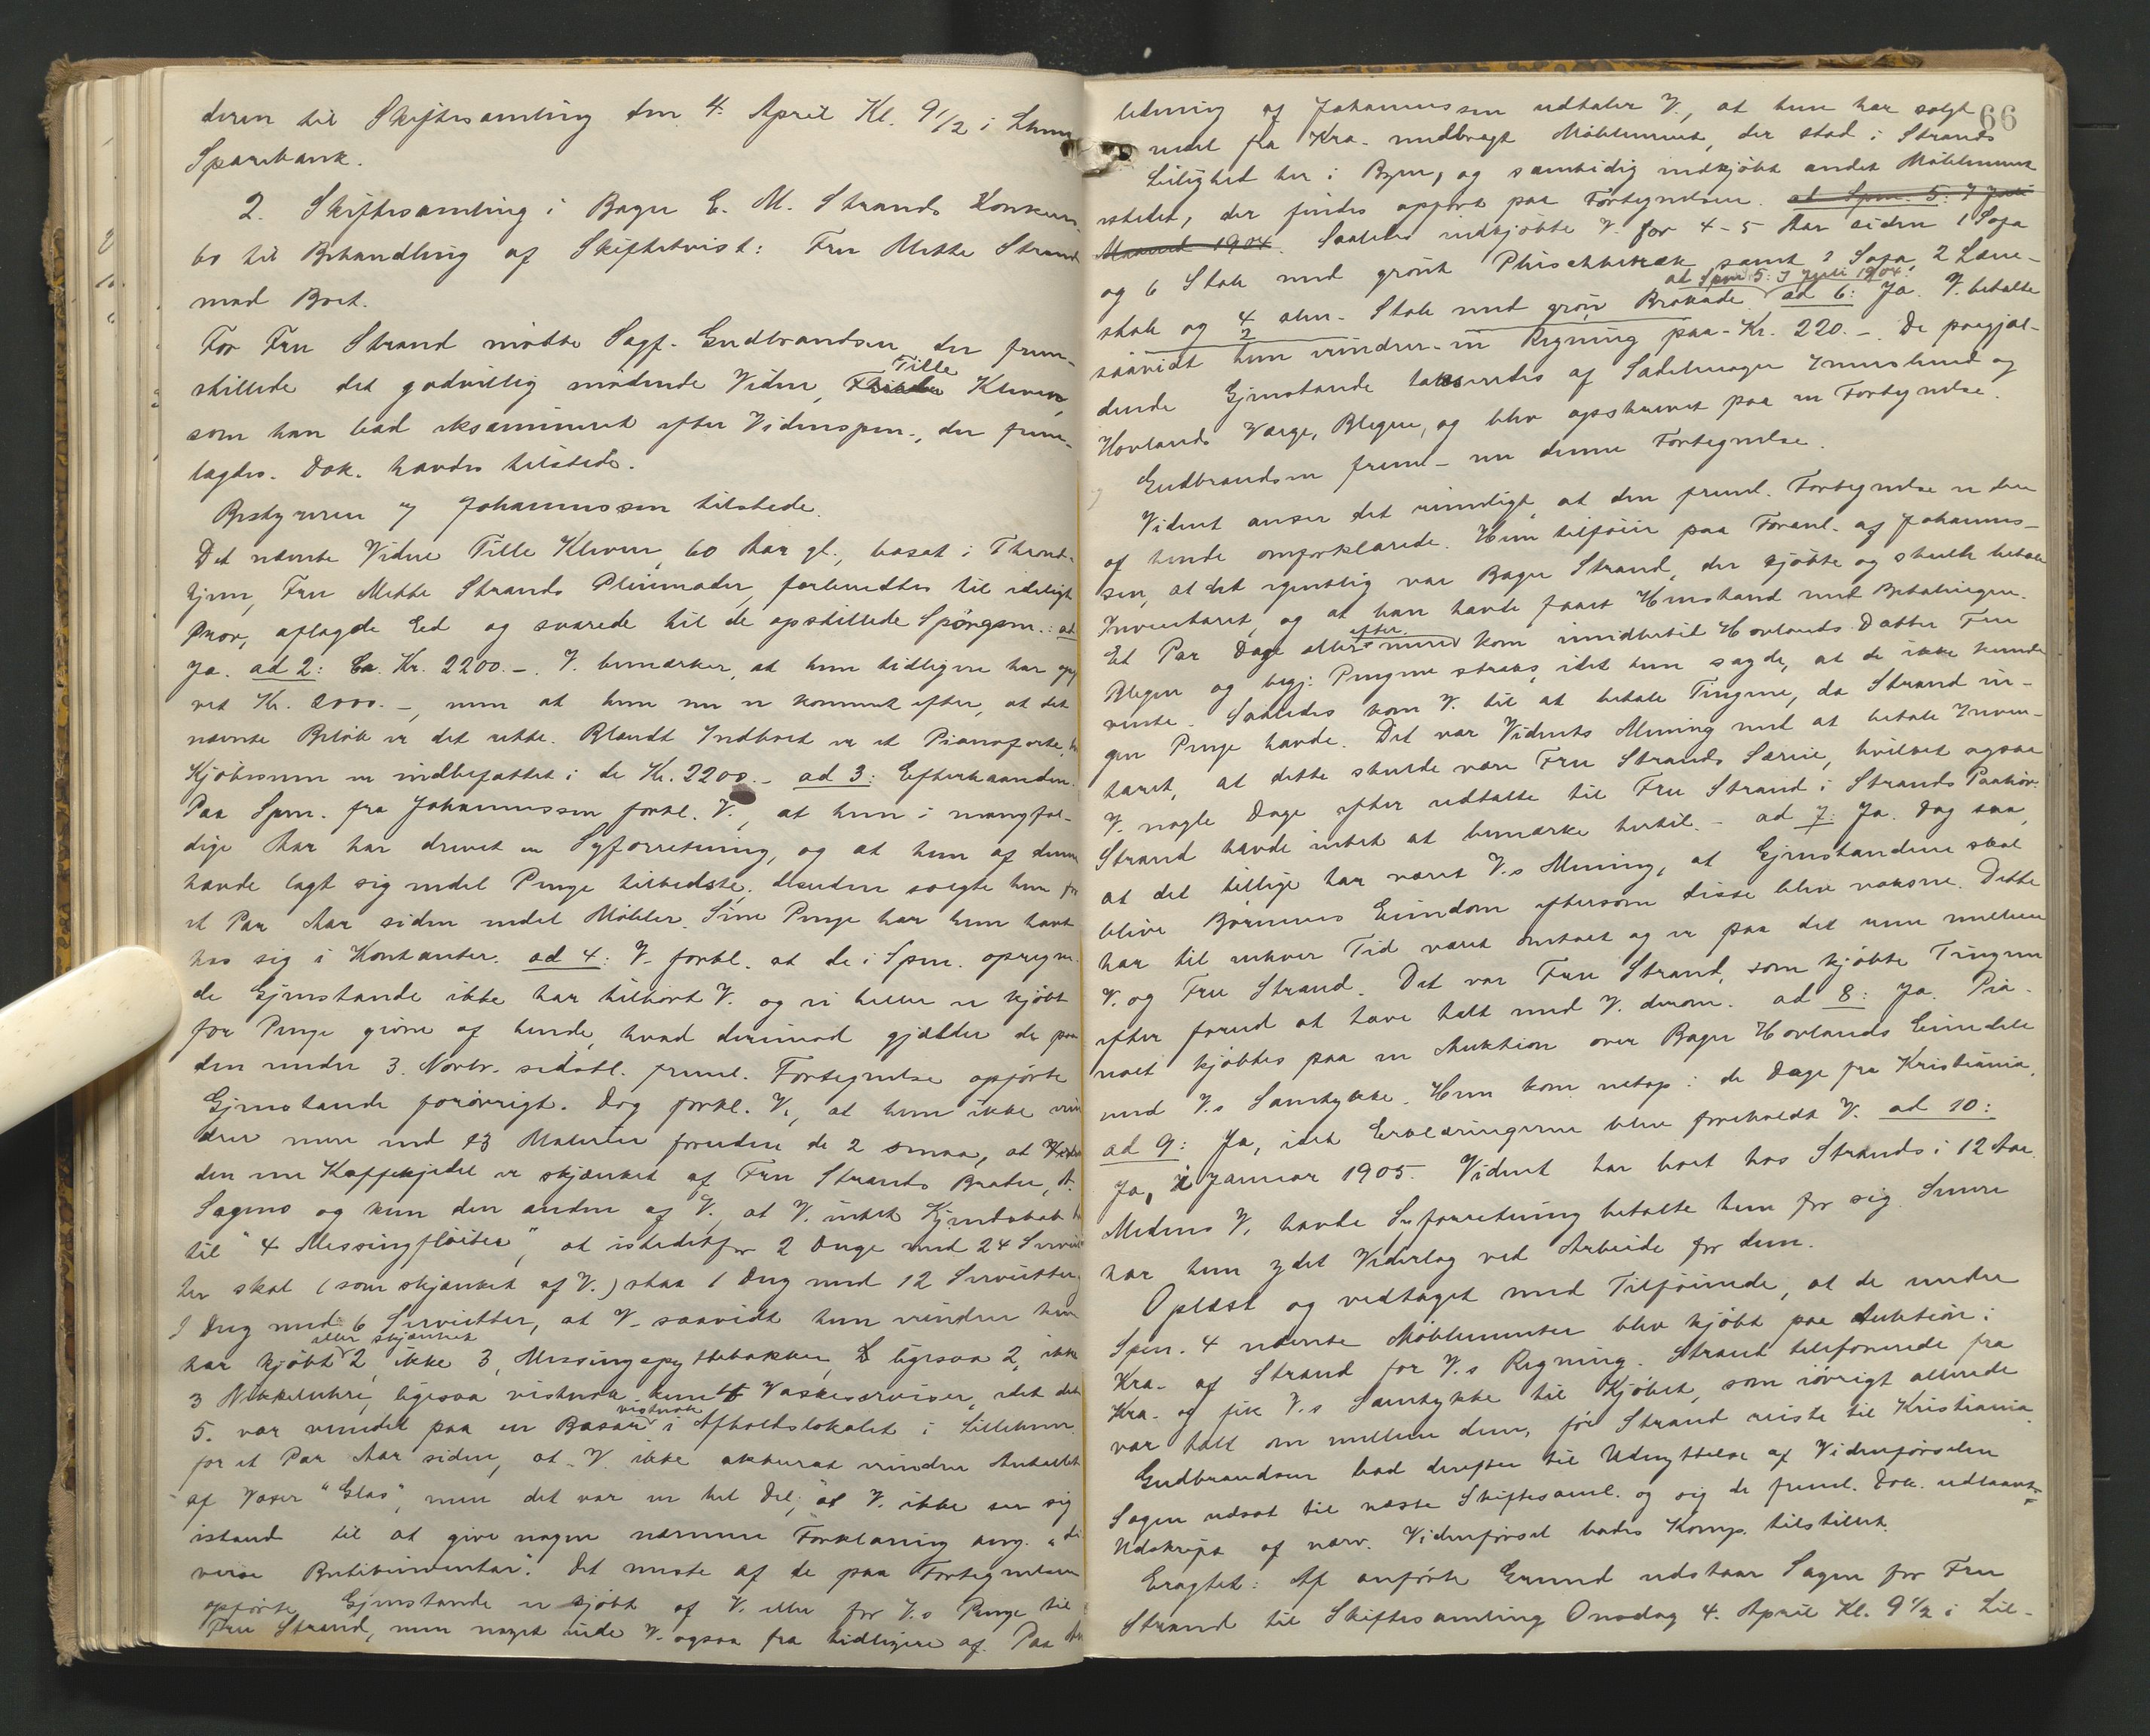 deren til Skiftesamling den 4. April Kl. 9 1/2 i
Sparebank.
2. Skiftesamling i Bager E. M. Strands Konkurs-
bo til Behandling af Skiftetvist: Fru Mette Strand
mod Boet.
For Fru Strand mødte Sagf. Gudbrandsen der frem-
stillede det godvillig mødende Vidne, Tille Kleven,
som han bad eksamineret efter Vidnespm., der frem-
lagdes. Dok. havdes tilstede.
Bestyreren og Johannessen tilstede.
Det nævnte Vidne Tille Kleven, 60 Aar gl., bosat i Thrond-
hjem, Fru Mette Strands Pleiemoder, forberedtes til edeligt
Prov, aflagde Ed og svarede til de opstillede Spørgsm.: ad
Ja. ad 2: Ca. Kr. 2200.-. V. bemærker, at hun tidligere har
vet Kr. 2000.-, men at hun nu er kommet efter, at det
nævnte Beløb er det rette. Blandt Indboet er et Pianoforte,
Kjøbesum er indbefattet i de Kr. 2200.- ad 3: Efterhaanden.
Paa Spm. fra Johannessen forkl. V., at hun i mangfol-
dige Aar har drevet en Syforretning, og at hun af denne
havde lagt sig endel Penge tilbedste; desuden solgte hun for
et Par Aar siden endel Møbler. Sine Penge har hun havt
hos sig i Kontanter. ad 4: V. forkl. at de i Spm. opregne-
de Gjenstande ikke har tilhørt V. og ei heller er kjøbt
for Penge givne af hende, hvad derimod gjælder de paa
den under 3. Novbr. sidstl. freml. Fortegnelse opførte
Gjenstande forøvrigt. Dog forkl. V., at hun ikke erin
drer mere end 3 Malerier foruden de 2 smaa, at
den ene Kaffekjedel er skjænket af Fru Strands Broder, A.
Sagmo og kun den anden af V., at V. intet Kjendskab har
til "4 Messingfløiter", at istedetfor 2 Duge med 24 Serviet
ter skal (som skjænket af V.) staa 1 Dug med 12 Servietter,
1 Dug med 6 Servietter, at V. saavidt hun erindrer kun
har kjøbt eller skjænket 2, ikke 3, Messingspyttebakker, ligesaa 2, ikke
3 Nikkeluhre, ligesaa vistnok kun 4 Vaskeserviser, idet det
5. var vundet paa en Basar vistnok i Afholdslokalet i Lillehmr.
for et Par Aar siden, at V. ikke akkurat erindrer Antallet
af Vaser "Glas", men det var en hel Del; at V. ikke ser sig
istand til at give nogen nærmere Forklaring ang. "di
verse Butikinventar". Det meste af de paa Fortegnelsen
opførte Gjenstande er kjøbt af V. eller for V.s Penge til
Fru Strand, men noget eiede V. ogsaa fra tidligere af. Paa An
66
ledning af Johannessen udtaler V., at hun har solgt
endel fra Kra. medbragt Møblement, der stod i Strands
Leilighed her i Byen, og samtidig indkjøbt andet Møblement
istedet, der findes opført paa Fortegnelsen. ad Spm. 5: I Juli
Maaned 1904. Saaledes indkjøbte V. for 4-5 Aar siden 1 Sofa
og 6 Stole med grønt Plüschbetræk samt 1 Sofa, 2 Læne-
stole og 4 alm. Stole med grøn Brokade ad Spm 5: I Juli 1904. ad 6: Ja. V. betalte
saavidt hun erindrer en Regning paa Kr. 220.-. De paagjæl-
dende Gjenstande taxeredes af Sadelmager Immerslund og
Hovlands Værge, Blegen, og blev opskrevet paa en Fortegnelse.
Gudbrandsen freml. nu denne Fortegnelse.
Vidnet anser det rimeligt, at den freml. Fortegnelse er den
af hende omforklarede. Hun tilføier paa Foranl. af Johannes-
sen, at det egentlig var Bager Strand, der kjøbte og skulde betale
Inventaret, og at han havde faaet Henstand med Betalingen.
Et Par Dage efter kom imidlertid Hovlands Datter Fru
Blegen og begj. Pengene straks, idet hun sagde, at de ikke kunde
vente. Saaledes kom V. til at betale Tingene, da Strand in-
gen Penge havde. Det var Vidnets Mening med at betale Inven-
taret, at dette skulde være Fru Strands Særeie, hvilket ogsaa
V. nogle Dage efter udtalte til Fru Strand i Strands Paahør.
Strand havde intet at bemærke hertil. - ad 7: Ja. Dog saa,
at det tillige har været V.s Mening, at Gjenstandene skal
blive Børnenes Eiendom eftersom disse blive voksne. Dette
har til enhver Tid været omtalt og er paa det rene mellem
V. og Fru Strand. Det var Fru Strand, som kjøbte Tingene
efter forud at have talt med V. derom. ad 8: Ja. Pia-
noet kjøbtes paa en Auktion over Bager Hovlands Eiendele
med V.s Samtykke. Hun kom netop i de Dage fra Kristiania.
ad 9: Ja, idet Erklæringerne blev foreholdt V. ad 10:
Ja, i Januar 1905. Vidnet har boet hos Strands i 12 Aar.
Medens V. havde Syforretning betalte hun for sig. Senere
har hun ydet Vederlag ved Arbeide for dem.
Oplæst og vedtaget med Tilføiende, at de under
Spm. 4 nævnte Møblementer blev kjøbt paa Auktion i
Kra. af Strand for V.s Regning. Strand telefonerede fra
Kra. og fik V.s Samtykke til Kjøbet, som iøvrigt allerede
var talt om mellem dem, før Strand reiste til Kristiania.
Gudbrandsen bad derefter til Udnyttelse af Vidneførselen
Sagen udsat til næste Skiftesaml. og sig de freml. Dok. udlaant.
Udskrift af nærv. Vidneførsel bades Komp. tilstillet.
Eragtet: Af anførte Grund udstaar Sagen for Fru
Strand til Skiftesamling Onsdag 4. April Kl. 9 1/2 i Lil-